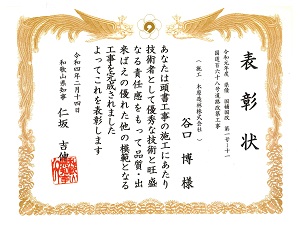 表彰状
令和元年度 点債 国補道改 第一号-十一
国道百六十八号道路改築工事
(施工 木原造林株式会社)
谷口 博 様
あなたは頭書工事の施工にあたり
技術者として優秀な技術と旺盛
なる責任感をもって品質・出
来ばえの優れた他の模範となる
工事を完成されました
よってこれを表彰します
令和四年二月十四日
和歌山県知事 仁坂 吉伸